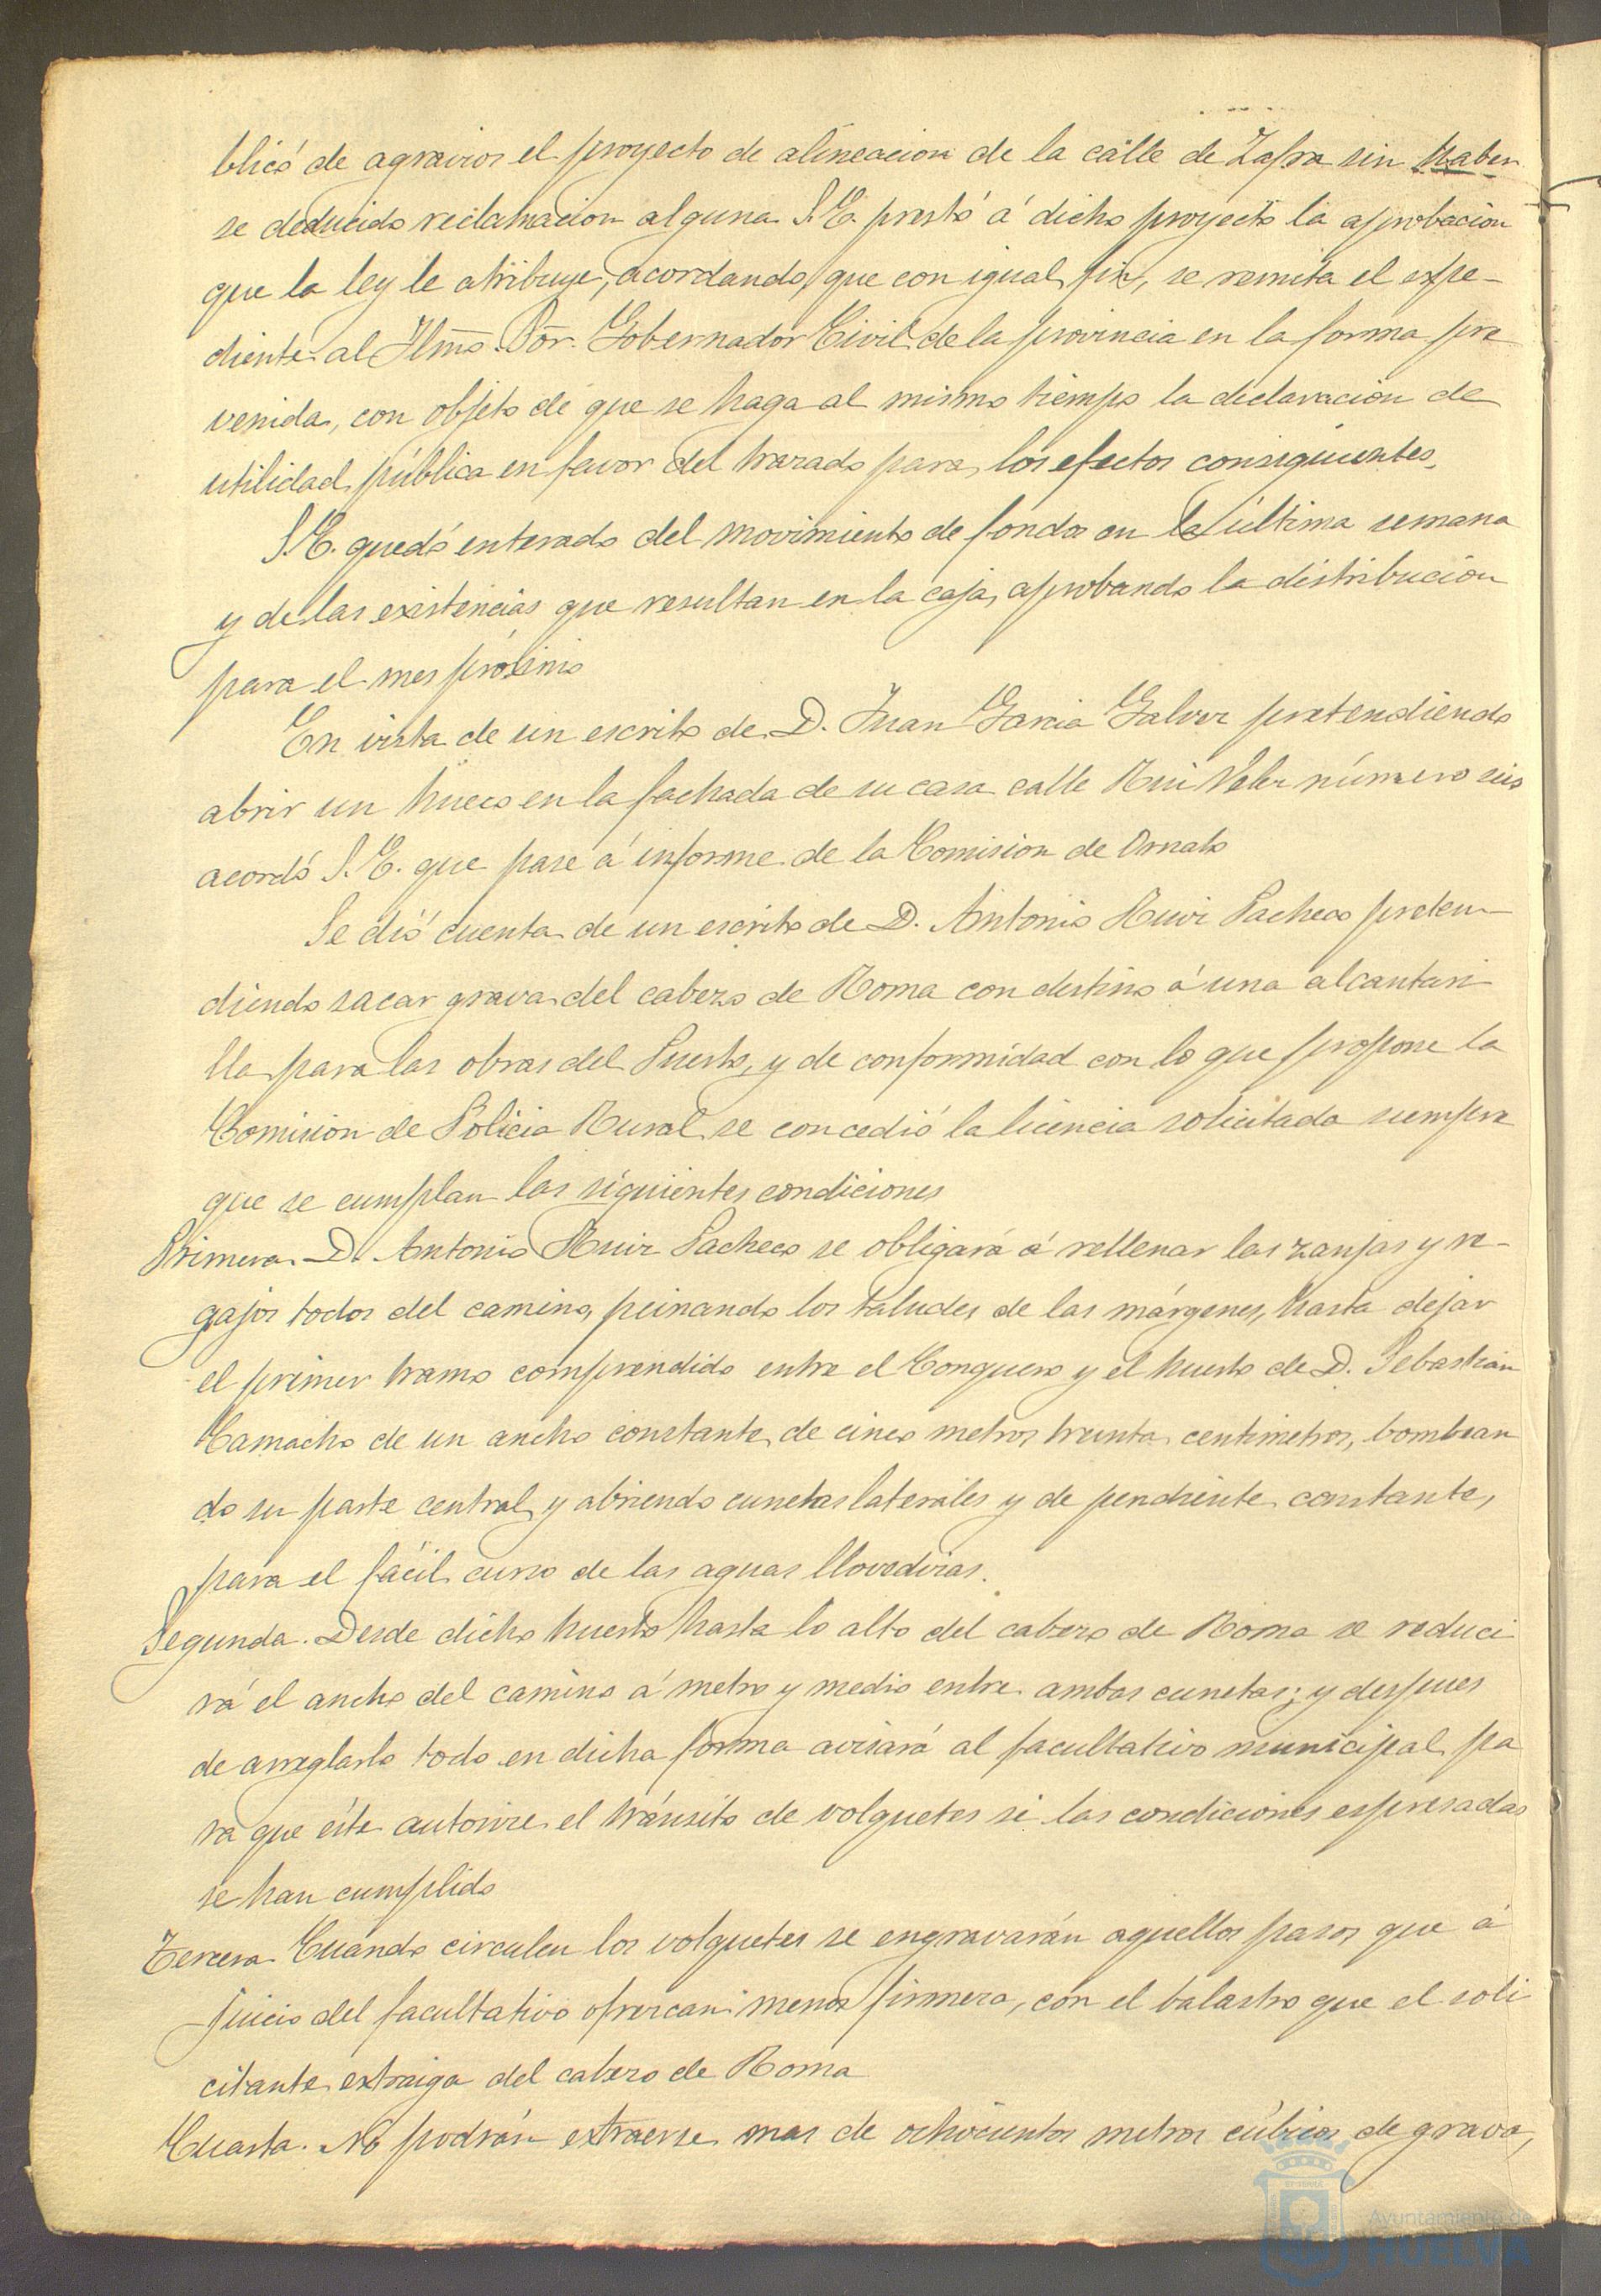 blicó de agravios el proyecto de alineacion de la calle de Zafra sin haber
se deducido reclamacion alguna S.E. prestó á dicho proyecto la aprobacion
que la ley le atribuye, acordando, que con igual fin, se remita el expe-
diente al Ilmo. Sor. Gobernador Civil de la provincia en la forma pre
venida, con objeto de que se haga al mismo tiempo la declaracion de
utilidad pública en favor del trazado para los efectos consiguientes.
S.E. quedó enterado del movimiento de fondos en la última semana
y de las existencias que resultan en la caja, aprobando la distribucion
para el mes próximo
En vista de un escrito de D. Juan Garcia Galvez pretendiendo
abrir un hueco en la fachada de su casa calle Rui Velez número seis
acordó S.E. que pase á informe de la Comision de Ornato
Se dió cuenta de un escrito de D. Antonio Ruiz Pacheco preten-
diendo sacar grava del cabezo de Roma con destino á una alcantari
lla para las obras del Puerto, y de conformidad con lo que propone la
Comision de Policia Rural se concedió la licencia solicitada siempre
que se cumplan las siguientes condiciones
Primera. D. Antonio Ruiz Pacheco se obligará á rellenar las zanjas y re-
gajos todos del camino, peinando los taludes de las márgenes, hasta dejar
el primer tramo comprendido entre el Conquero y el huerto de D. Sebastian
Camacho de un ancho constante de cinco metros treinta centimetros, bombean
do su parte central y abriendo cunetas laterales y de pendiente constante,
para el fácil curso de las aguas llovedizas.
Segunda. Desde dicho huerto hasta lo alto del cabezo de Roma se reduci
rá el ancho del camino á metro y medio entre ambas cunetas; y despues
de arreglarlo todo en dicha forma avisará al facultativo municipal pa
ra que éste autorice el tránsito de volquetes si las condiciones espresadas
se han cumplido
Tercera. Cuando circulen los volquetes se engravarán aquellos pasos que á
juicio del facultativo ofrezcan menos firmeza, con el balastro que el soli
citante extraiga del cabezo de Roma
Cuarta. No podrán extraerse mas de ochocientos metros cúbicos de grava,
Ayuntamiento de
HUELVA